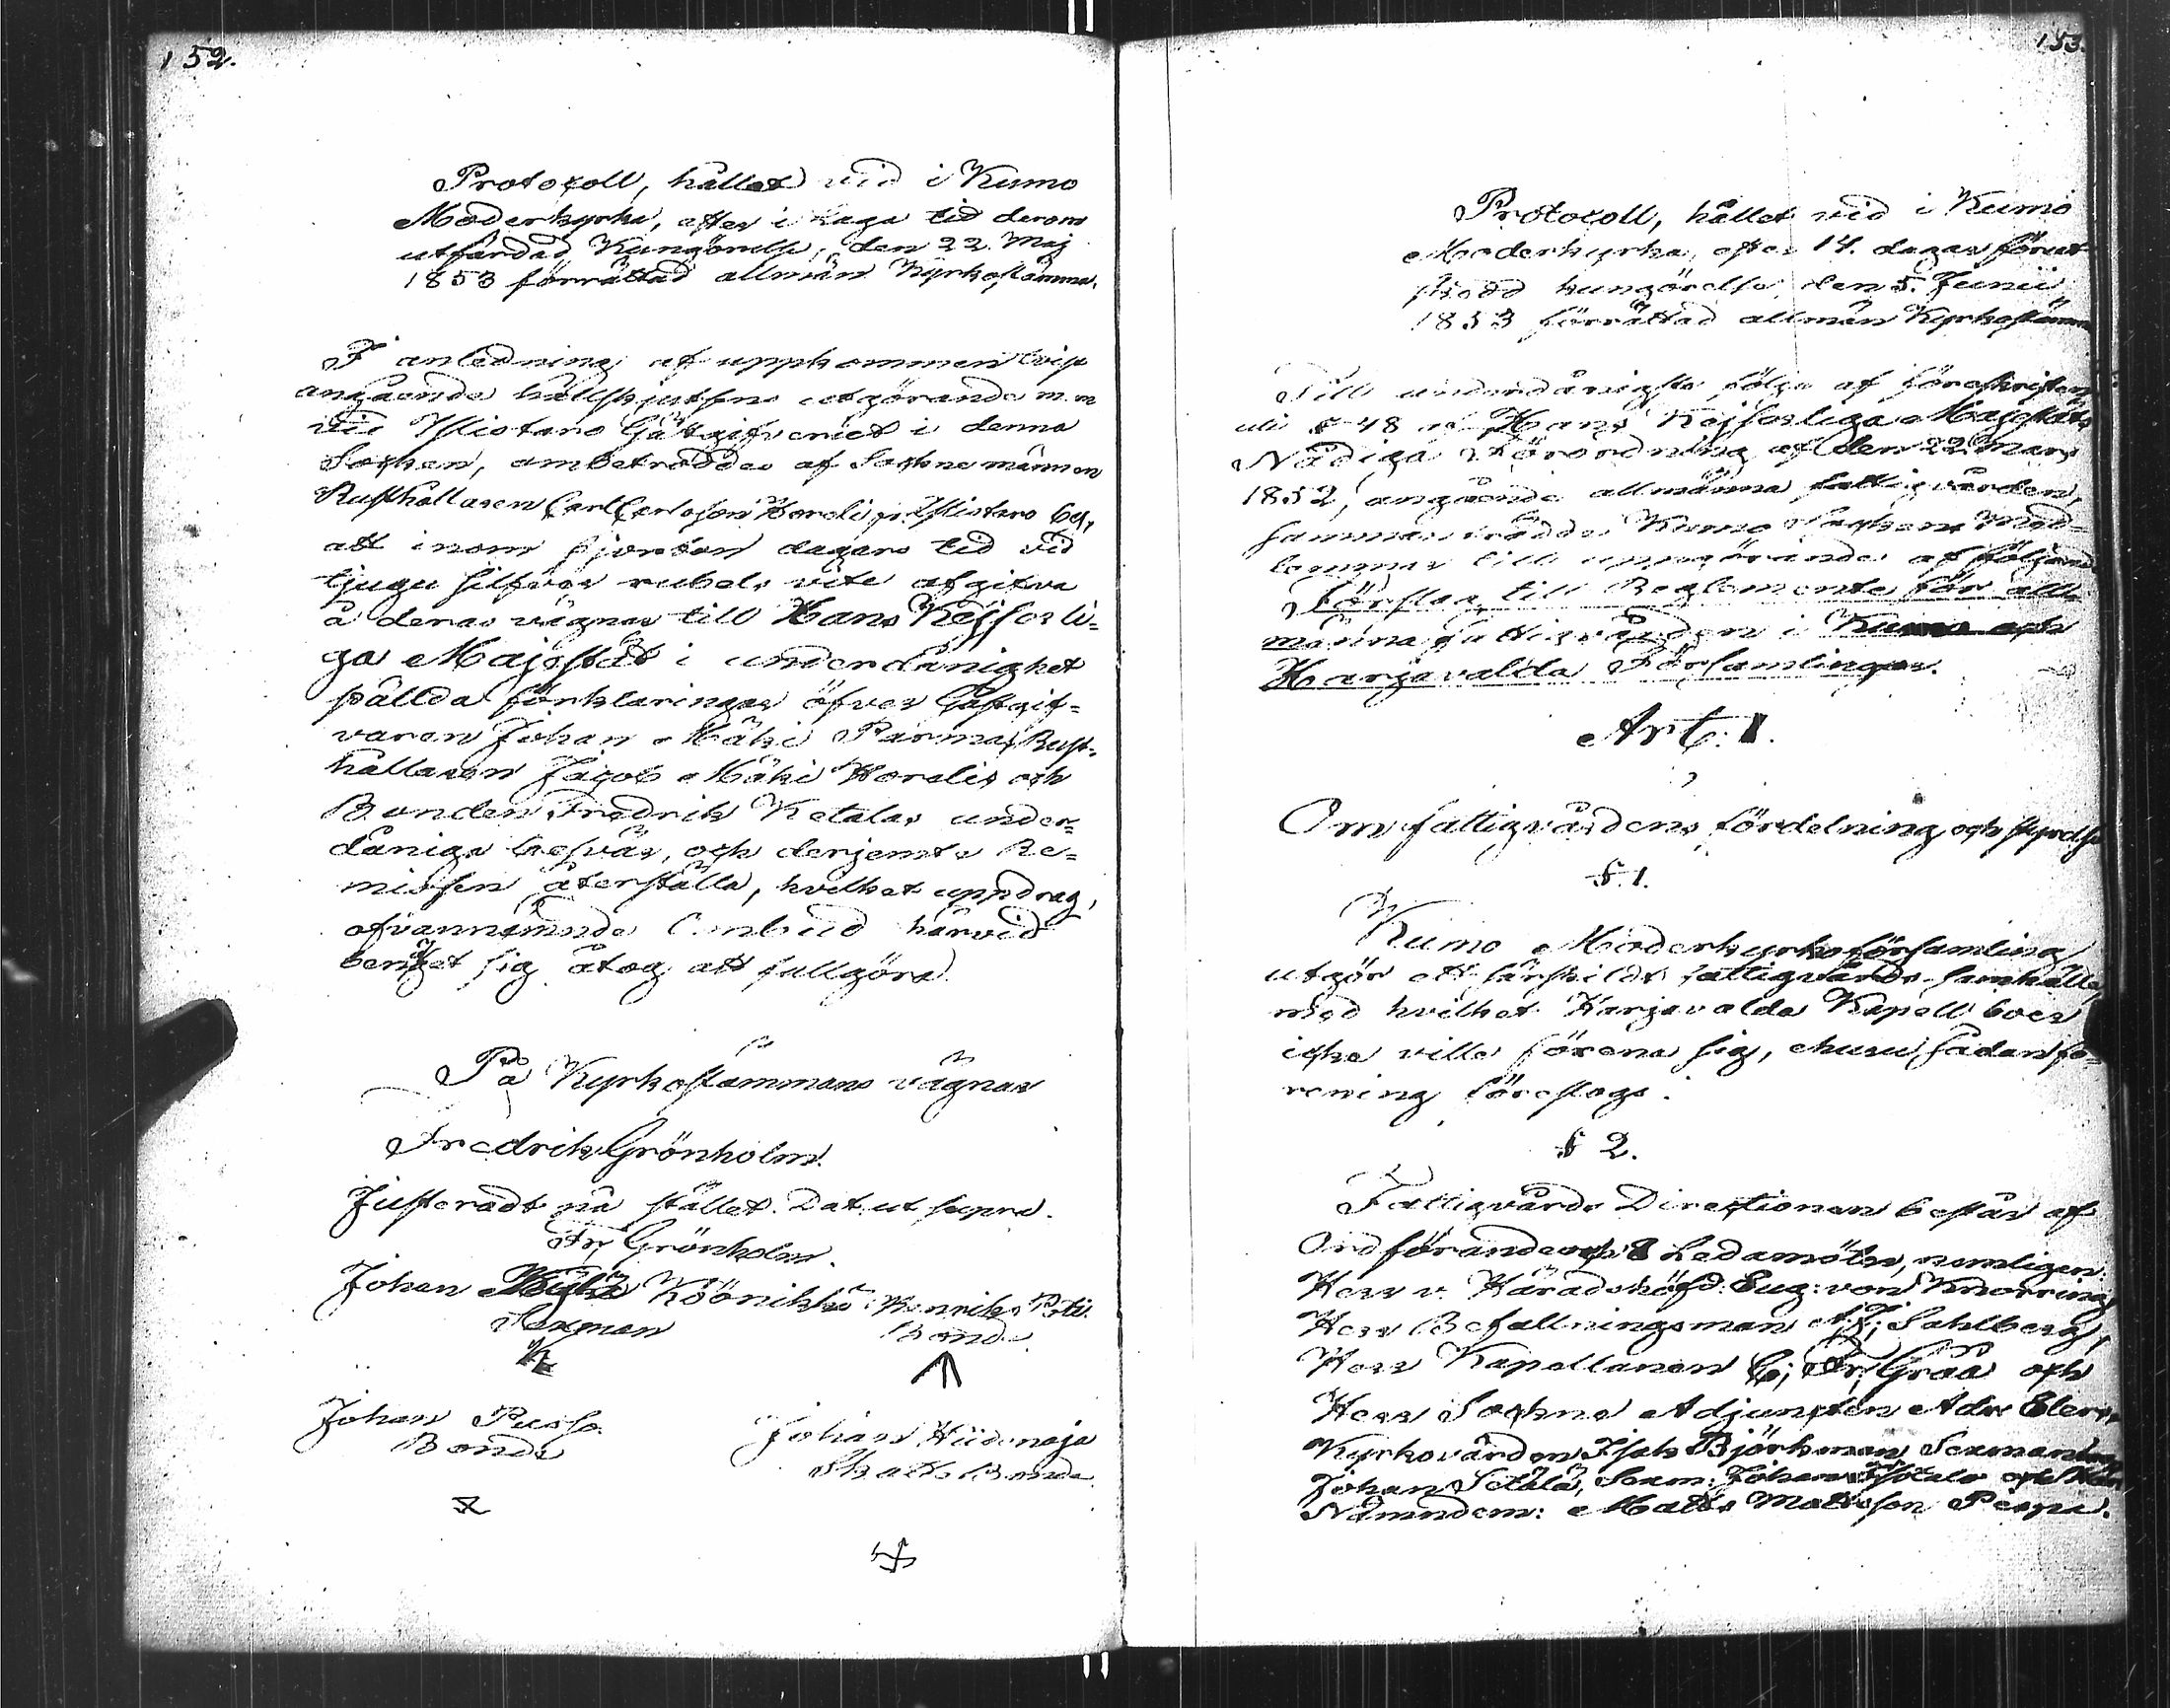 152.
Protocoll, hållet vid i Kumo
Moderkyrka, efter i Laga tid derom
utfärdad Kungörelse, den 22 Maj
1853 förrättad allmän Kyrkostämma.
I anledning af uppkommen tvist
angående hållskjutsens utgörande m.m
vid Ylistaro Gästgifveriet i denna
Socken, ambetroddes af Socknemännen
Rusthållaren Carl Carlsson Horelis i Ylistaro by,
att inom fjorton dagars tid vid
tjugu silfver rubels vite afgifva
å deras vägnar till Hans Kejserli-
ga Majestät i underdånighet
stållda förklaringar öfver Gästgif-
varen Johan Mäki Parmas, Rust-
hållaren Jacob Mäki Horelis och
Bonden Fredrik Ketalas under-
dåniga besvär, och derjemte Re-
missen återställa, hvilket uppdrag,
ofvannämnde Ombud härvid
benäget sig åtog att fullgöra.
På Kyrkostämmans vägnar
Fredrik Grönholm.
Justeradt på stället. Dat. ut supra.
Fr, Grönholm.
Johan Köönikkä Henrik
Sexman Bonde
Johan Pusso Johan Hiidenoja
Bonde Skatte Bonde
153.
Protocoll, hållet vid i Kumo
Moderkyrka, efter 14. dagar förut
skedd kungörelse den 5. Junii
1853 förrättad allmän Kyrkostämma
Till underdånigste följe af föreskriften
uti § 48 af Hans Kejserliga Majestäts
Nådiga Förordning af den 22 Mars
1852, angående allmänna fattigvården,
sammanträdde Kumo Sockens Med-
lemmar till uppgörande af följande
Förslag till Reglemente för all-
männa fattigvården i Kumo och
Harjavalda Församlingar.
Art: 1.
Om fattigvårdens fördelning och styrelse
§. 1.
Kumo Moderkyrkoförsamling
utgör ett särskildt fattigvårds-Samhälle,
med hvilket Harjavalda Kapell boer
icke ville förena sig, ehuru sådan fö-
rening föreslogs.
§ 2.
Fattigvårds Directionen består af
Ordförande och 8 Ledamöter, nemligen:
Herr v. Häradshöfd: Eug: von Knorring,
Herr Befallningsman Sahlberg,
Herr Kapellanen C; Fr; Grää och
Herr Sockne Adjuncten Adr
Kyrkovärden Isak Björkman, Sexmannen
Johan Setälä, Sexm: Johan och
Nämndem: Matts Mattsson Piispa.